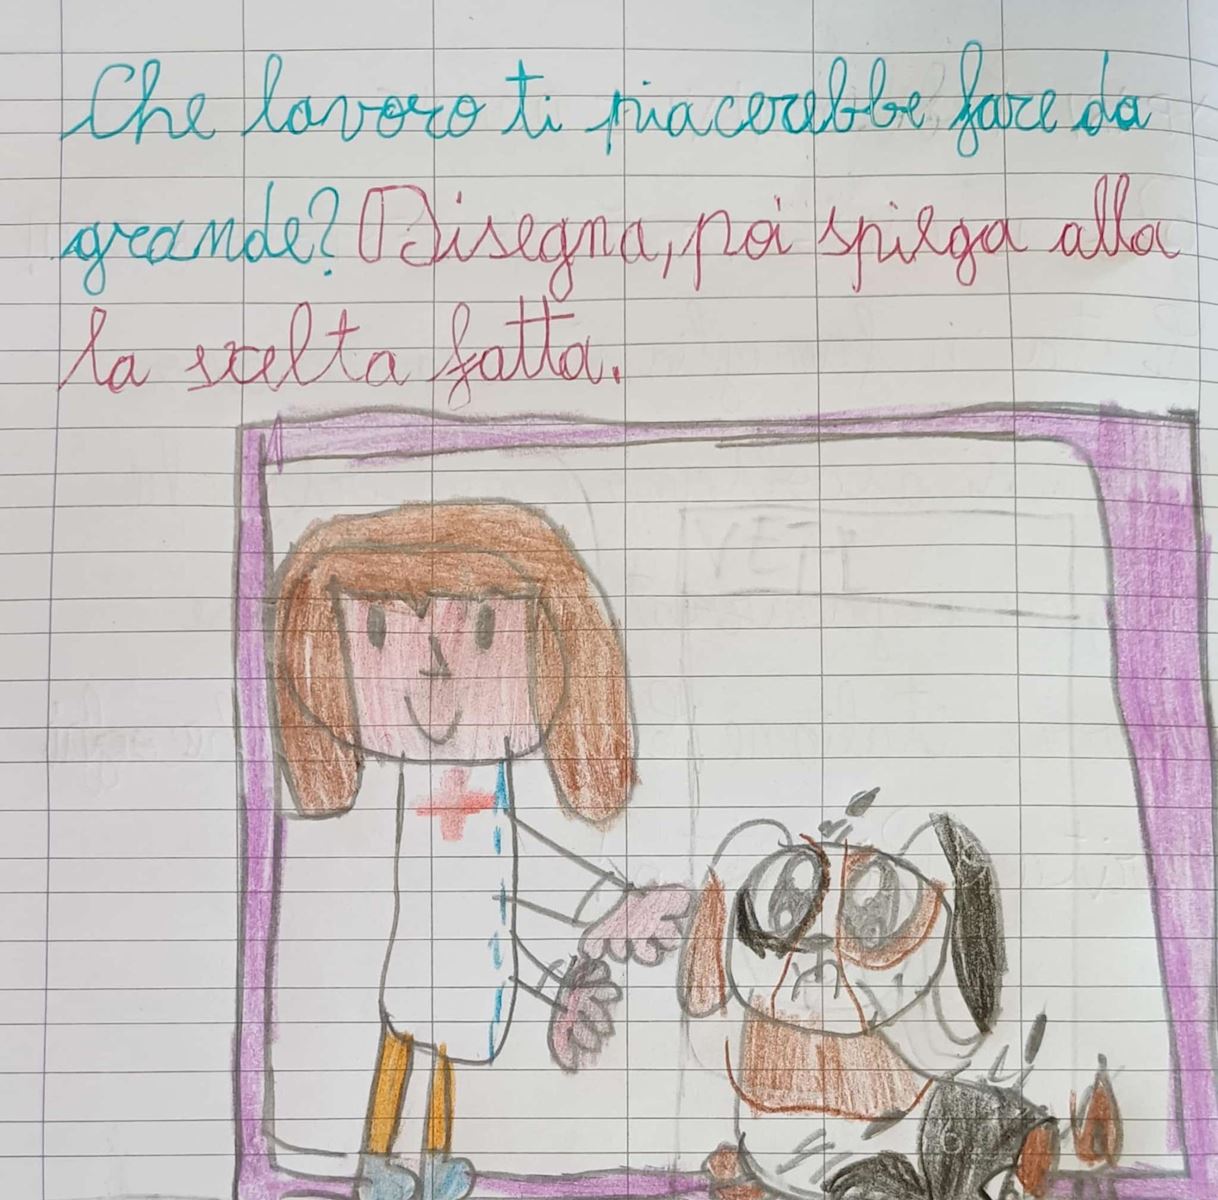 Che lavoro ti piacerebbe fare da
grande? Disegna, poi spiega alla
la scelta fatta.